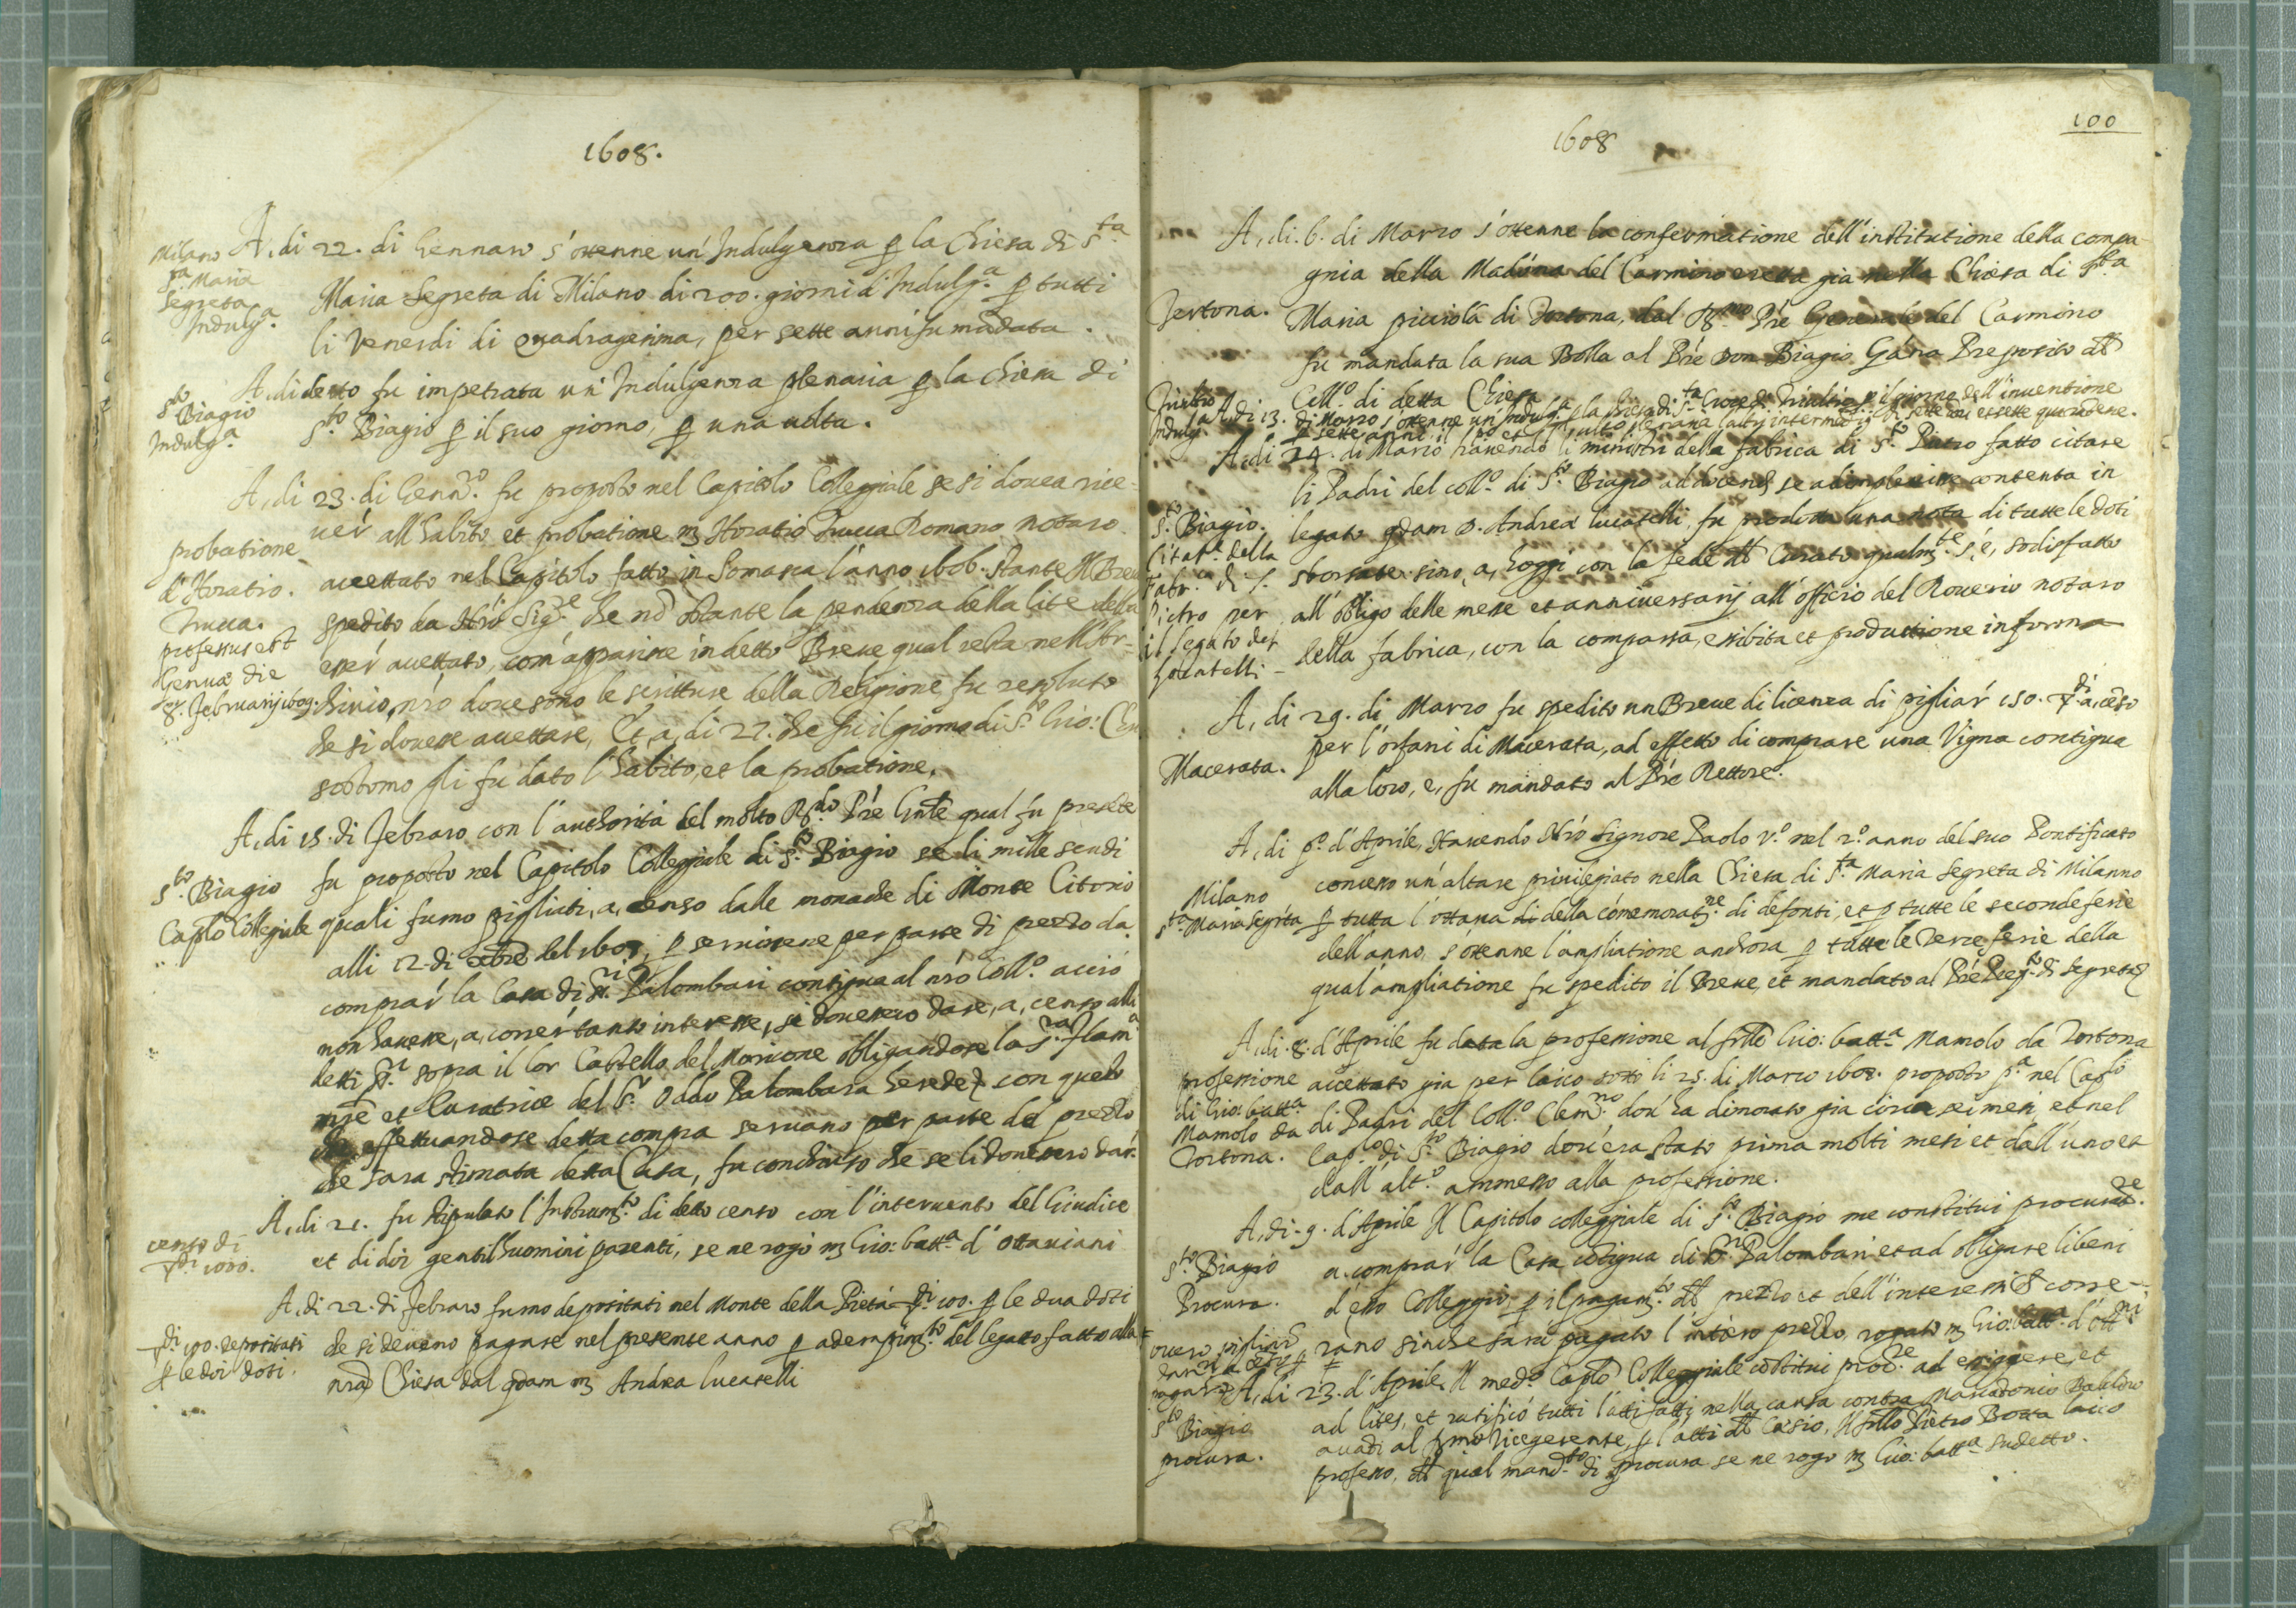 1608.
Milano
S.ta Maria
Segreta
Indulg.a
A, di 22. di Gennaro s'ottenne un'Indulgenza p la Chiesa di S.ta
Maria Segreta di Milano di 200. giorni d'Indulg.a p tutti
li Venerdi di quadragesima, per sette anni fu mãdata.
S.to Biagio
Indulg.a
A, di detto fu impetrata un'Indulgenza plenaria p la chiesa di
S.to Biagio p il suo giorno, p una uolta.
probatione
d'Horatio
Trucca.
professus est
Genuæ die
8. Februarij 1609.
A, di 23. di Genn.ro fu proposto nel Capitolo Collegiale se si douea rice-
uer all'habito et probatione m Horatio Trucca Romano notaro
accettato nel Capitolo fatto in Somasca l'anno 1606. stante Il Breue
spedito da Nrõ Sig.re che nõ ostante la pendenza della lite della
esser accettato, com'apparisce in detto Breue qual resta nell'Ar-
chiuio nr̃o doue sono le scritture della Religione fu resoluto
che si douesse accettare, Et, a, di 27. che fu il giorno di S.to Gio: Chri
sostomo gli fu dato l'habito, et la probatione.
S.to Biagio
Caplo Collegiale
A, di 15. di Febraro con l'authorità del molto R.do Pr̃e Gnle qual fu presete
fu proposto nel Capitolo Collegiale di S.to Biagio se li mille scudi
quali furno pigliati, a, censo dalle monache di Monte Citorio
alli 12. di del 1607, p seruirsene per parte di prezzo da
comprar la Casa di SS.ri Palombari contigua al nr̃o Coll.o acciò
non hauesse, a, correr tanto interesse, si douessero dare, a, censo alli
detti SS.ri sopra il lor Castello del Moricone obligandose la S.ra Flam.a
mr̃e et Curatrice del S.r Oddo Palombara herede con questo
che effettuandose detta compra seruano per parte del prezzo
che sara stimata detta Casa, fu concluso che se li douessero dar.
censo di
di 1000.
A, di 21. fu stipulato l'Instrum.to di detto censo con l'interuento del Giudice
et di doi gentilhuomini parenti, se ne rogò m Gio: batt.a d'Ottauiani
di 100. depositati
p le doi doti.
A, di 22. di Febraro furno depositati nel Monte della Pietà di 100. p le dua doti
che si deueno pagare nel presente anno p adempim.to del legato fatto alla
nr̃a Chiesa dal qdam m Andrea Lucatelli
1608
100
Tertona.
A, di. 6. di Marzo s'ottenne la confermatione dell'institutione della compa-
gnia della Madona del Carmino eretta gia nella Chiesa di S.ta
Maria picciola di Tortona, dal R.mo Pr̃e Generale del Carmino
fu mandata la sua Bolla al Pr̃e Don Biagio Gana Preposito
Coll.o di detta Chiesa
Indulg.
A, di 13. di Marzo s'ottenne un'Indulg.a p la chiesa di S.ta Croce di Triultio p il giorno dell'inuentione
p sette anni
S.to Biagio.
Citat.e della
Fabr.ca di S.
Pietro per
il legato del
Locatelli
A, di 24. di Marzo hauendo li ministri della fabrica di S.to Pietro fatto citare
li Padri del coll.o di S.to Biagio ad docend se adimplesse contenta in
legato qdam D. Andrea Lucatelli, fu prodotta una nota di tutte le doti
sborsate sino, a, hoggi con la fede Curato qualm.te s'è, sodisfatto
all'obligo delle messe et anniuersarij all'officio del Rouerio notaro
della fabrica, con la comparsa, essibita et produttione in forma
Macerata.
A, di 29. di Marzo fu spedito un Breue di licenza di pigliar 150. di a, cẽso
per l'orfani di Macerata, ad effetto di comprare una Vigna contigua
alla loro, e, fu mandato al Pr̃e Rettore.
Milano
S.ta Maria Segreta
A, di p.o d'Aprile, Hauendo Nrõ Signore Paolo V.o nel 2.o anno del suo Pontificato
concesso un'altare priuilegiato nella Chiesa di S.ta Maria Segreta di Milanno
p tutta l'ottaua di della cõmemorat.ne di defonti, et p tutte le seconde ferie
dell'anno, s'ottenne l'ampliatione anchora p tutte le terze ferie della
qual'ampliatione fu spedito il Breue, et mandato al Pr̃e Prep.to di Segreta
professione
di Gio: batt.a
Mamolo da
Tortona.
A, di. 8. d'Aprile fu data la professione al frllo Gio: batt.a Mamolo da Tortona
accettato gia per laico sotto li 25. di Marzo 1608. proposto p.a nel Caplo
di Padri del Coll.o Clem.no dou'ha dimorato gia circa sei mesi, et nel
Cap.lo di S.to Biagio dou'era stato prima molti mesi et dall'uno et
dall'alt.o ammesso alla professione.
S.to Biagio
Procura.
A, di. 9. d'Aprile Il Capitolo collegiale di S.to Biagio me constitui procurat.re
a comprar la Casa cõtigua di SS.ri Palombari et ad obligare li beni
d'esso Colleggio, p il pagam.to prezzo et dell'interessi corre-
rano sinche sara pagato l'intiero prezzo, rogato m Gio: batt.a d'Ott.ni
S.to Biagio
procura.
A, di 23. d'Aprile Il med.o Caplo Collegiale cõstitui proc.re ad essiggere, et
ad lites, et ratificò tutti l'atti fatti nella causa contra Marcãtonio
auãti al Vicegerente, p l'atti Casio, Il frllo Pietro Botta laico
professo, qual mand.to di procura se ne rogò m Gio: batt.a sudetto.